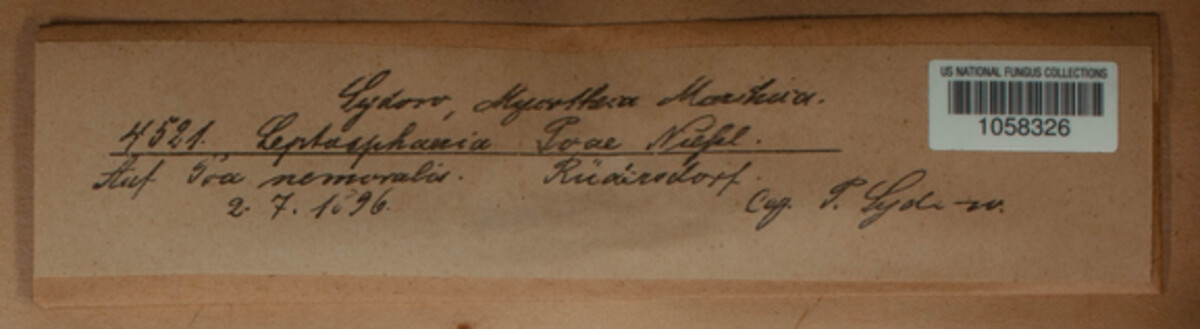 Sydow, Mycotheca Marchica.
4521. Leptosphaeria Poae Niessl.
Auf Poa nemoralis. Rüdersdorf.
2. 7. 1896. leg. P. Sydow.
US NATIONAL FUNGUS COLLECTIONS
1058326